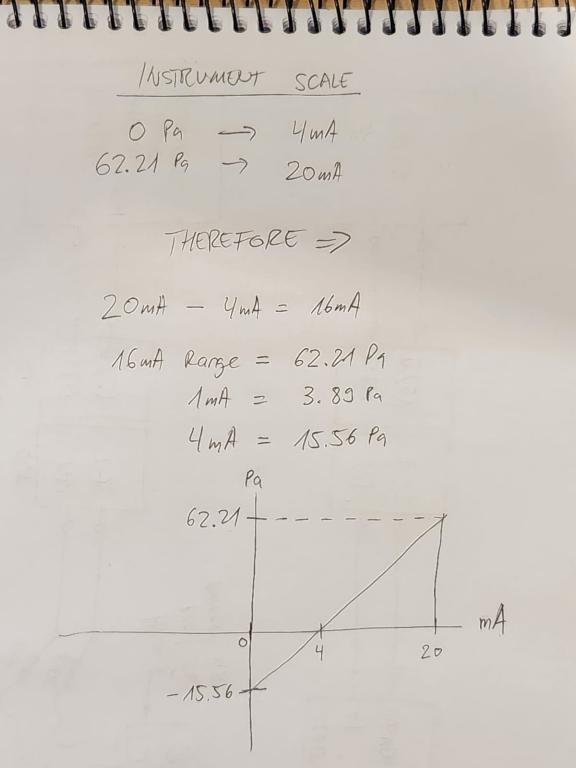 INSTRUMENT SCALE
0 Pa → 4mA
62.21 Pa → 20mA
THEREFORE ⇒
20mA - 4mA = 16mA
16mA Range = 62.21 Pa
1mA = 3.89 Pa
4mA = 15.56 Pa
Pa
62.21
mA
0 4 20
-15.56